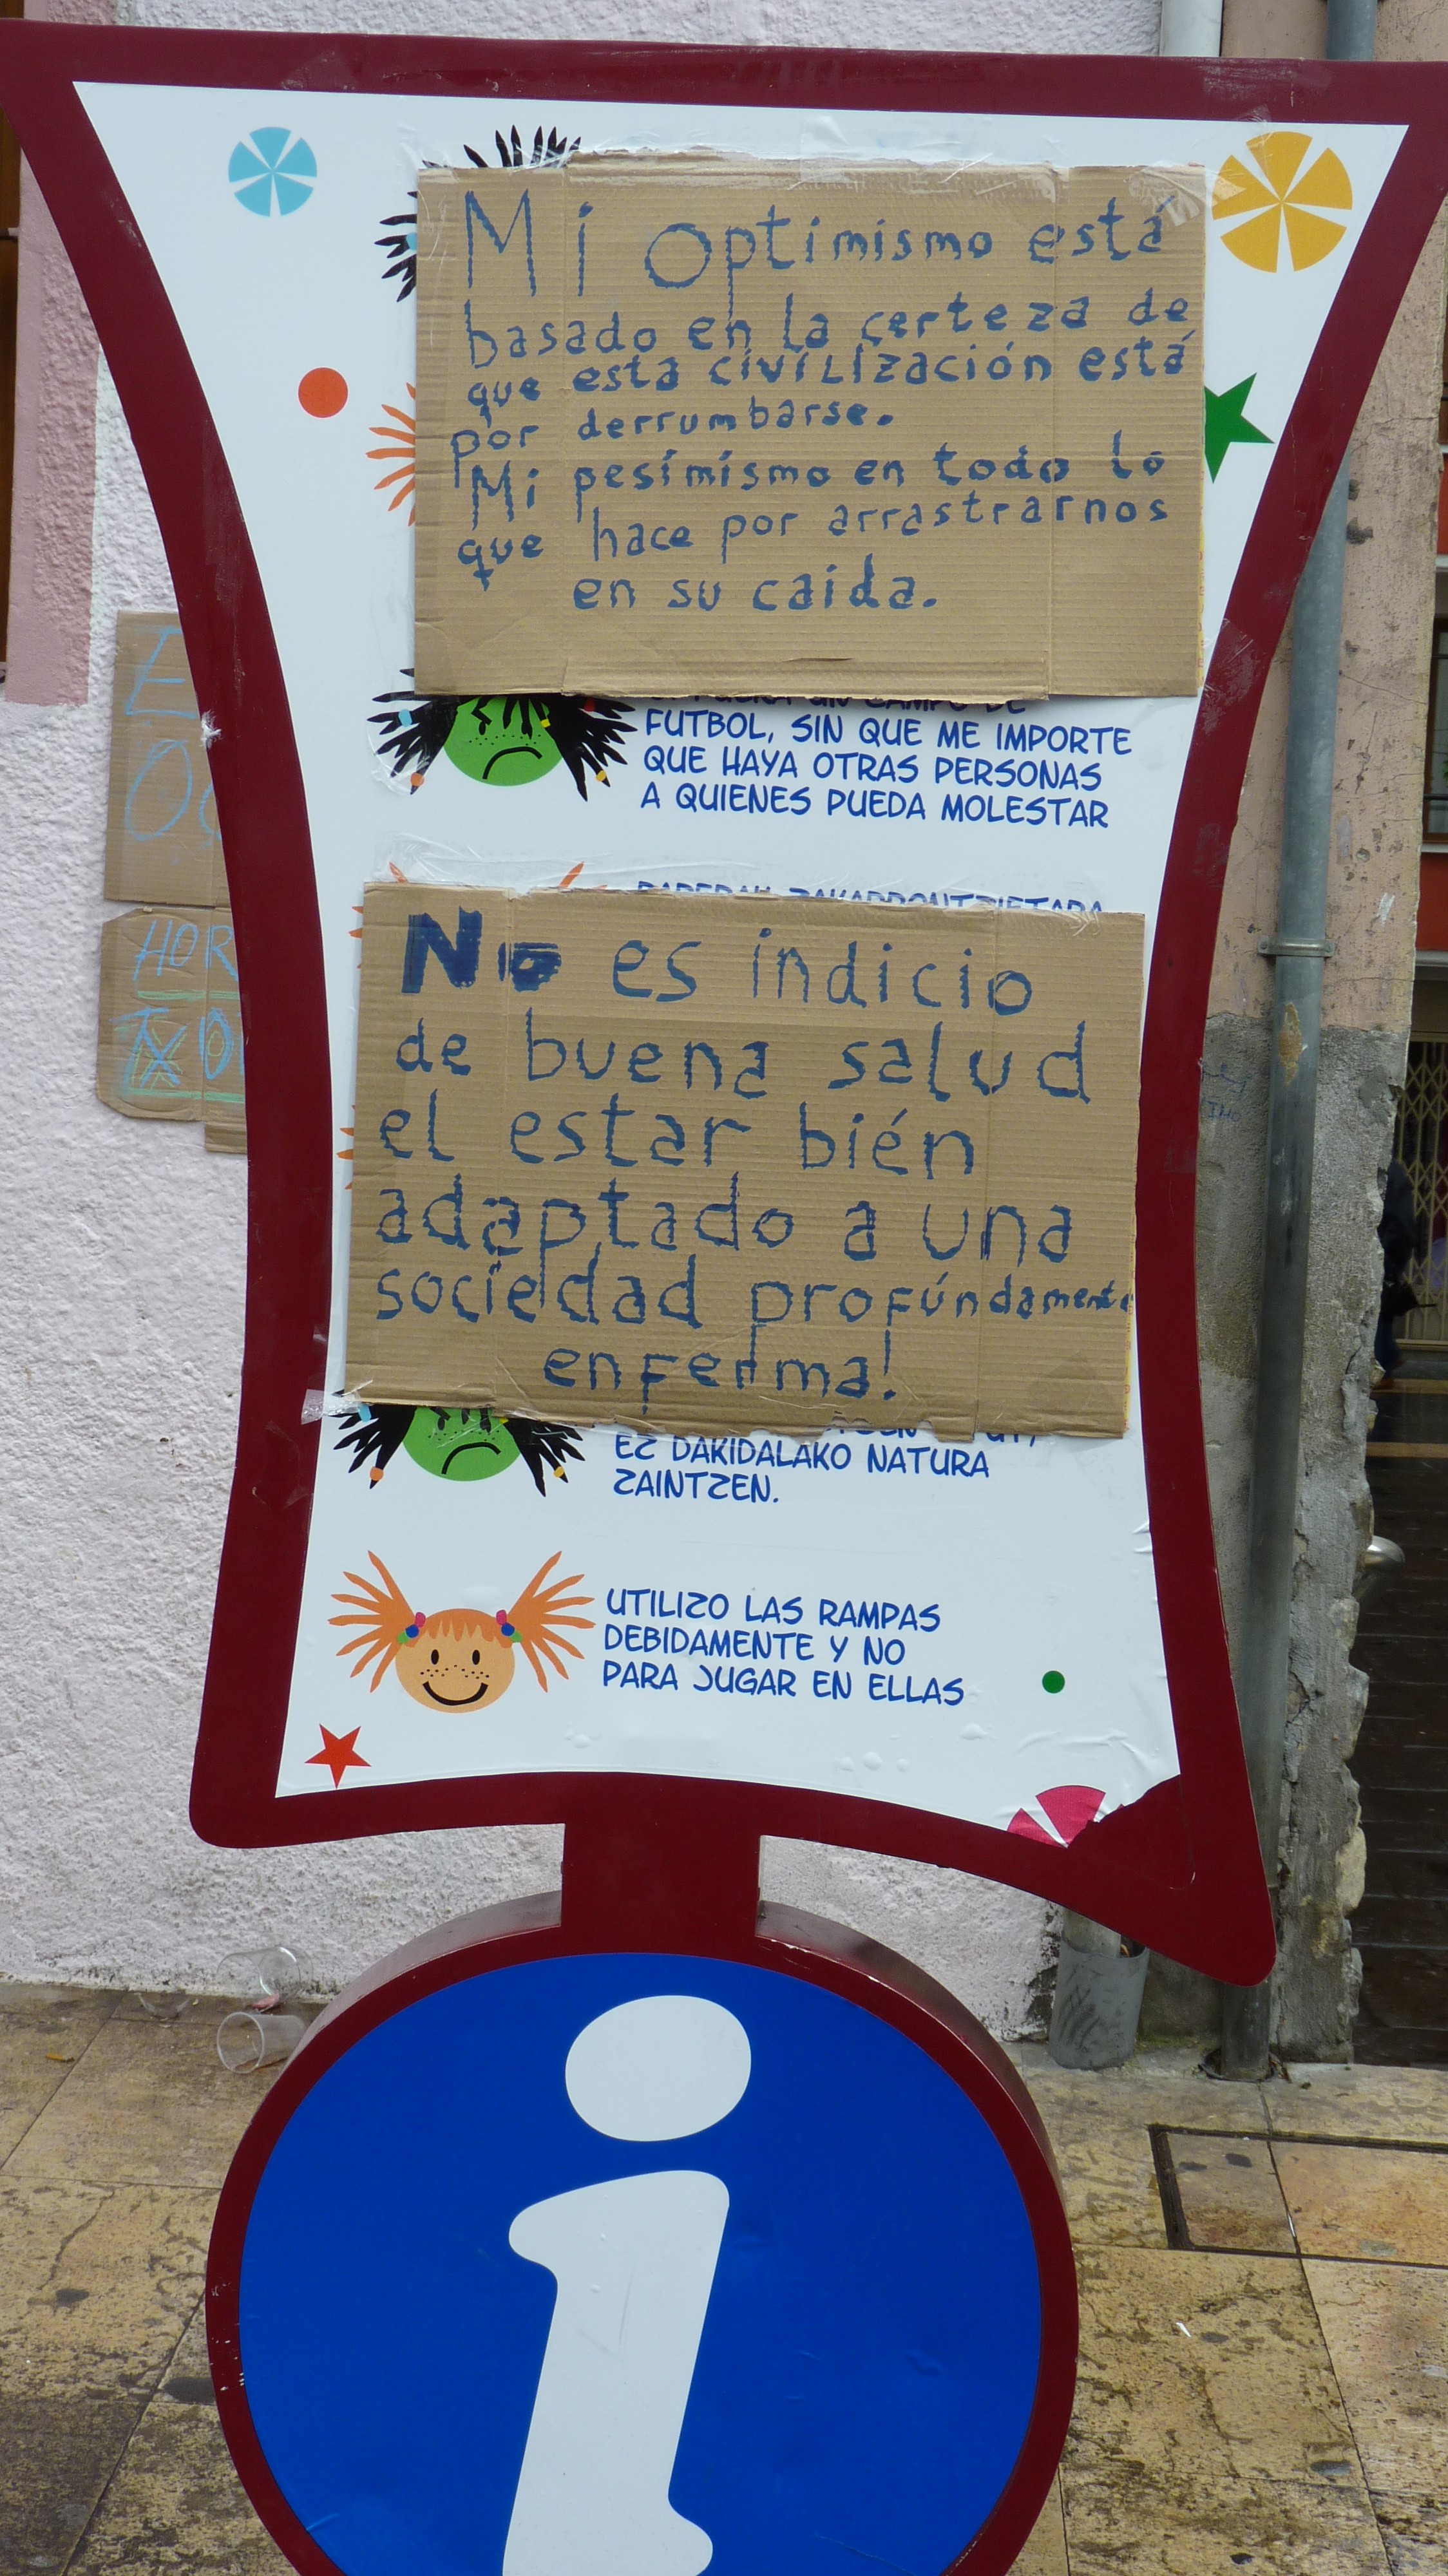 Mi optimismo está
basado en la certeza de
que esta civilización está
por derrumbarse.
Mi pesimismo en todo lo
que hace por arrastrarnos
en su caida.
UN CAMPO DE
FUTBOL, SIN QUE ME IMPORTE
QUE HAYA OTRAS PERSONAS
A QUIENES PUEDA MOLESTAR
No es indicio
de buena salud
el estar bién
adaptado a una
sociedad profúndamente
enferma!
EZ DAKIDALAKO NATURA
ZAINTZEN.
UTILIZO LAS RAMPAS
DEBIDAMENTE Y NO
PARA JUGAR EN ELLAS
i
HOR